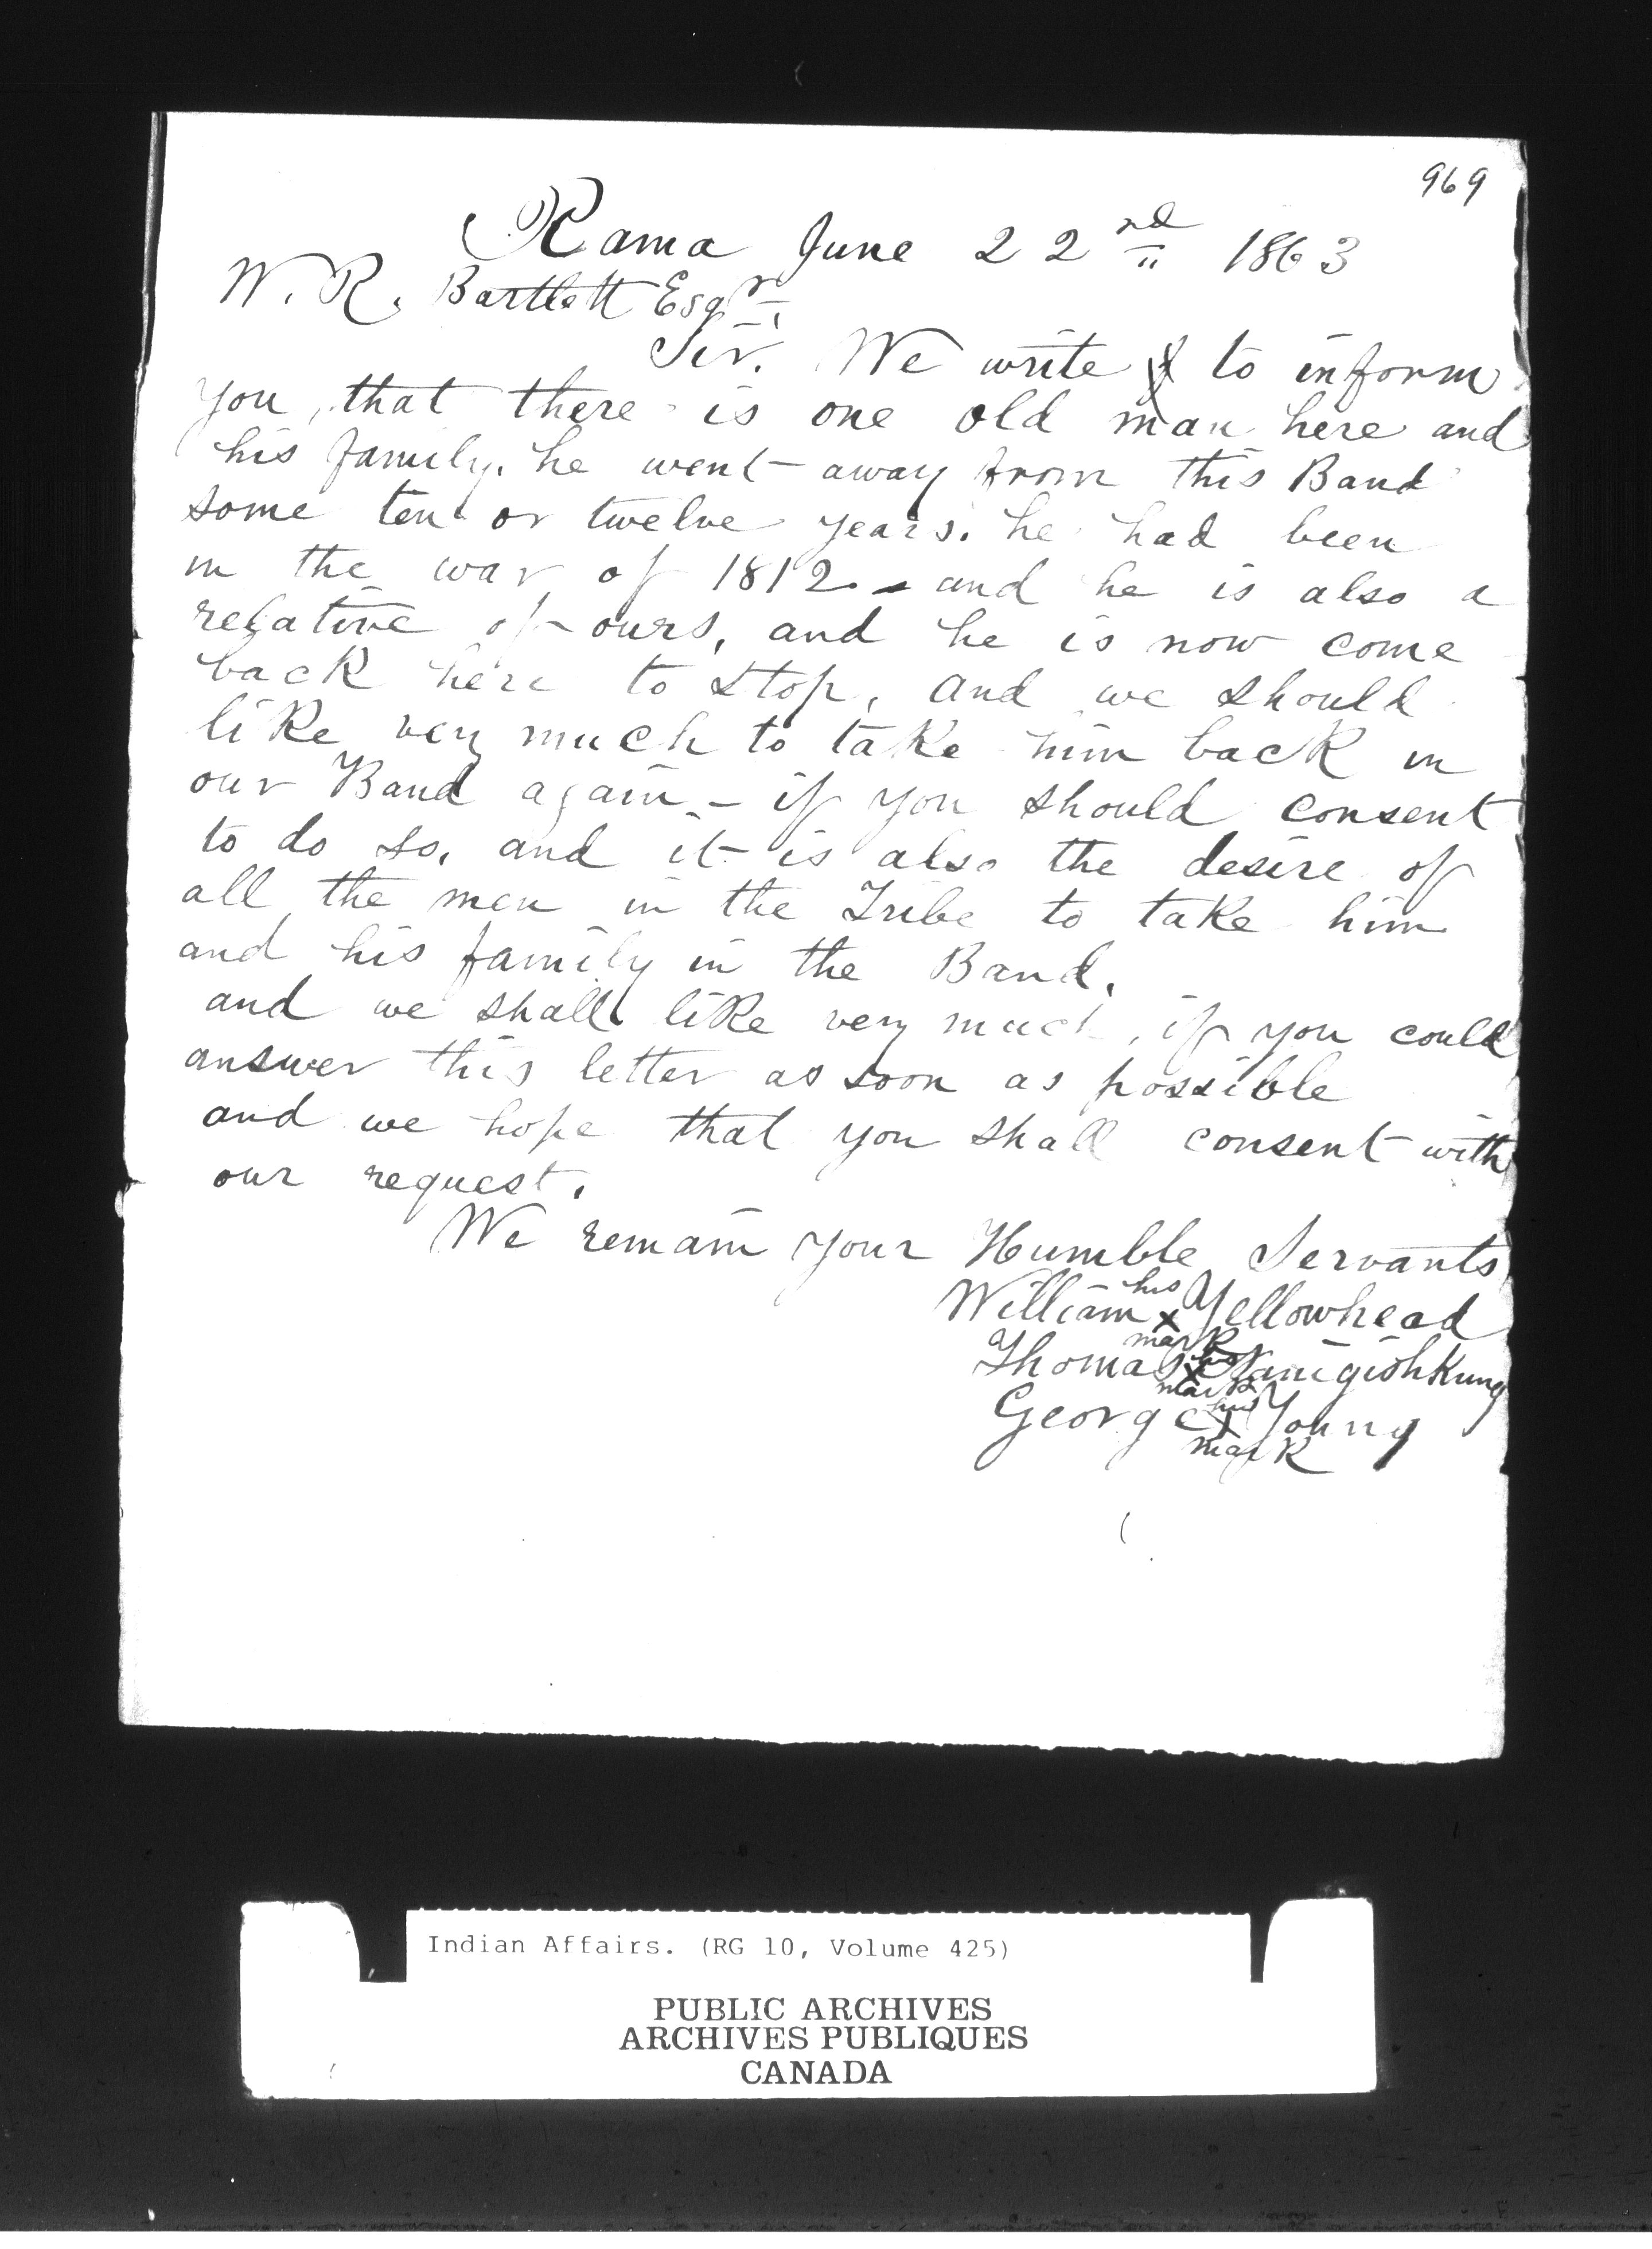 969
Rama June 22nd 1863
W. R. Bartlett Esqr.
Sir. We write to inform
you, that there is one old man here and
his family. he went away from this Band
some ten or twelve years. he had been
in the war of 1812. - and he is also a
relative of ours, and he is now come
back here to stop, and we should
like very much to take him back in
our Band again - if you should consent
to do so. and it is also the desire of
all the men in the Tribe to take him
and his family in the Band.
and we shall like very much, if you could
answer this letter as soon as possible
and we hope that you shall consent with
our request.
We remain your Humble Servants
William his x mark Yellowhead
Thomas his x mark Nanigishkung
George his x mark Young
Indian Affairs. (RG 10, Volume 425)
PUBLIC ARCHIVES
ARCHIVES PUBLIQUES
CANADA